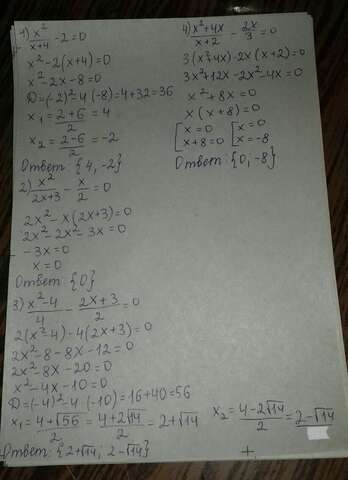 1) x²/(x+4) - 2 = 0
x² - 2(x+4) = 0
x² - 2x - 8 = 0
D = (-2)² - 4·(-8) = 4 + 32 = 36
x₁ = (2+6)/2 = 4
x₂ = (2-6)/2 = -2
Ответ: {4, -2}
2) x²/(2x+3) - x/2 = 0
2x² - x(2x+3) = 0
2x² - 2x² - 3x = 0
-3x = 0
x = 0
Ответ: {0}
3) (x²-4)/4 - (2x+3)/2 = 0
2(x²-4) - 4(2x+3) = 0
2x² - 8 - 8x - 12 = 0
2x² - 8x - 20 = 0
x² - 4x - 10 = 0
D = (-4)² - 4·(-10) = 16 + 40 = 56
x₁ = (4+√56)/2 = (4+2√14)/2 = 2+√14
x₂ = (4-2√14)/2 = 2-√14
Ответ: {2+√14; 2-√14}
4) (x²+4x)/(x+2) - 2x/3 = 0
3(x²+4x) - 2x(x+2) = 0
3x² + 12x - 2x² - 4x = 0
x² + 8x = 0
x(x+8) = 0
[x = 0 [x = 0
[x+8 = 0 [x = -8
Ответ: {0, -8}